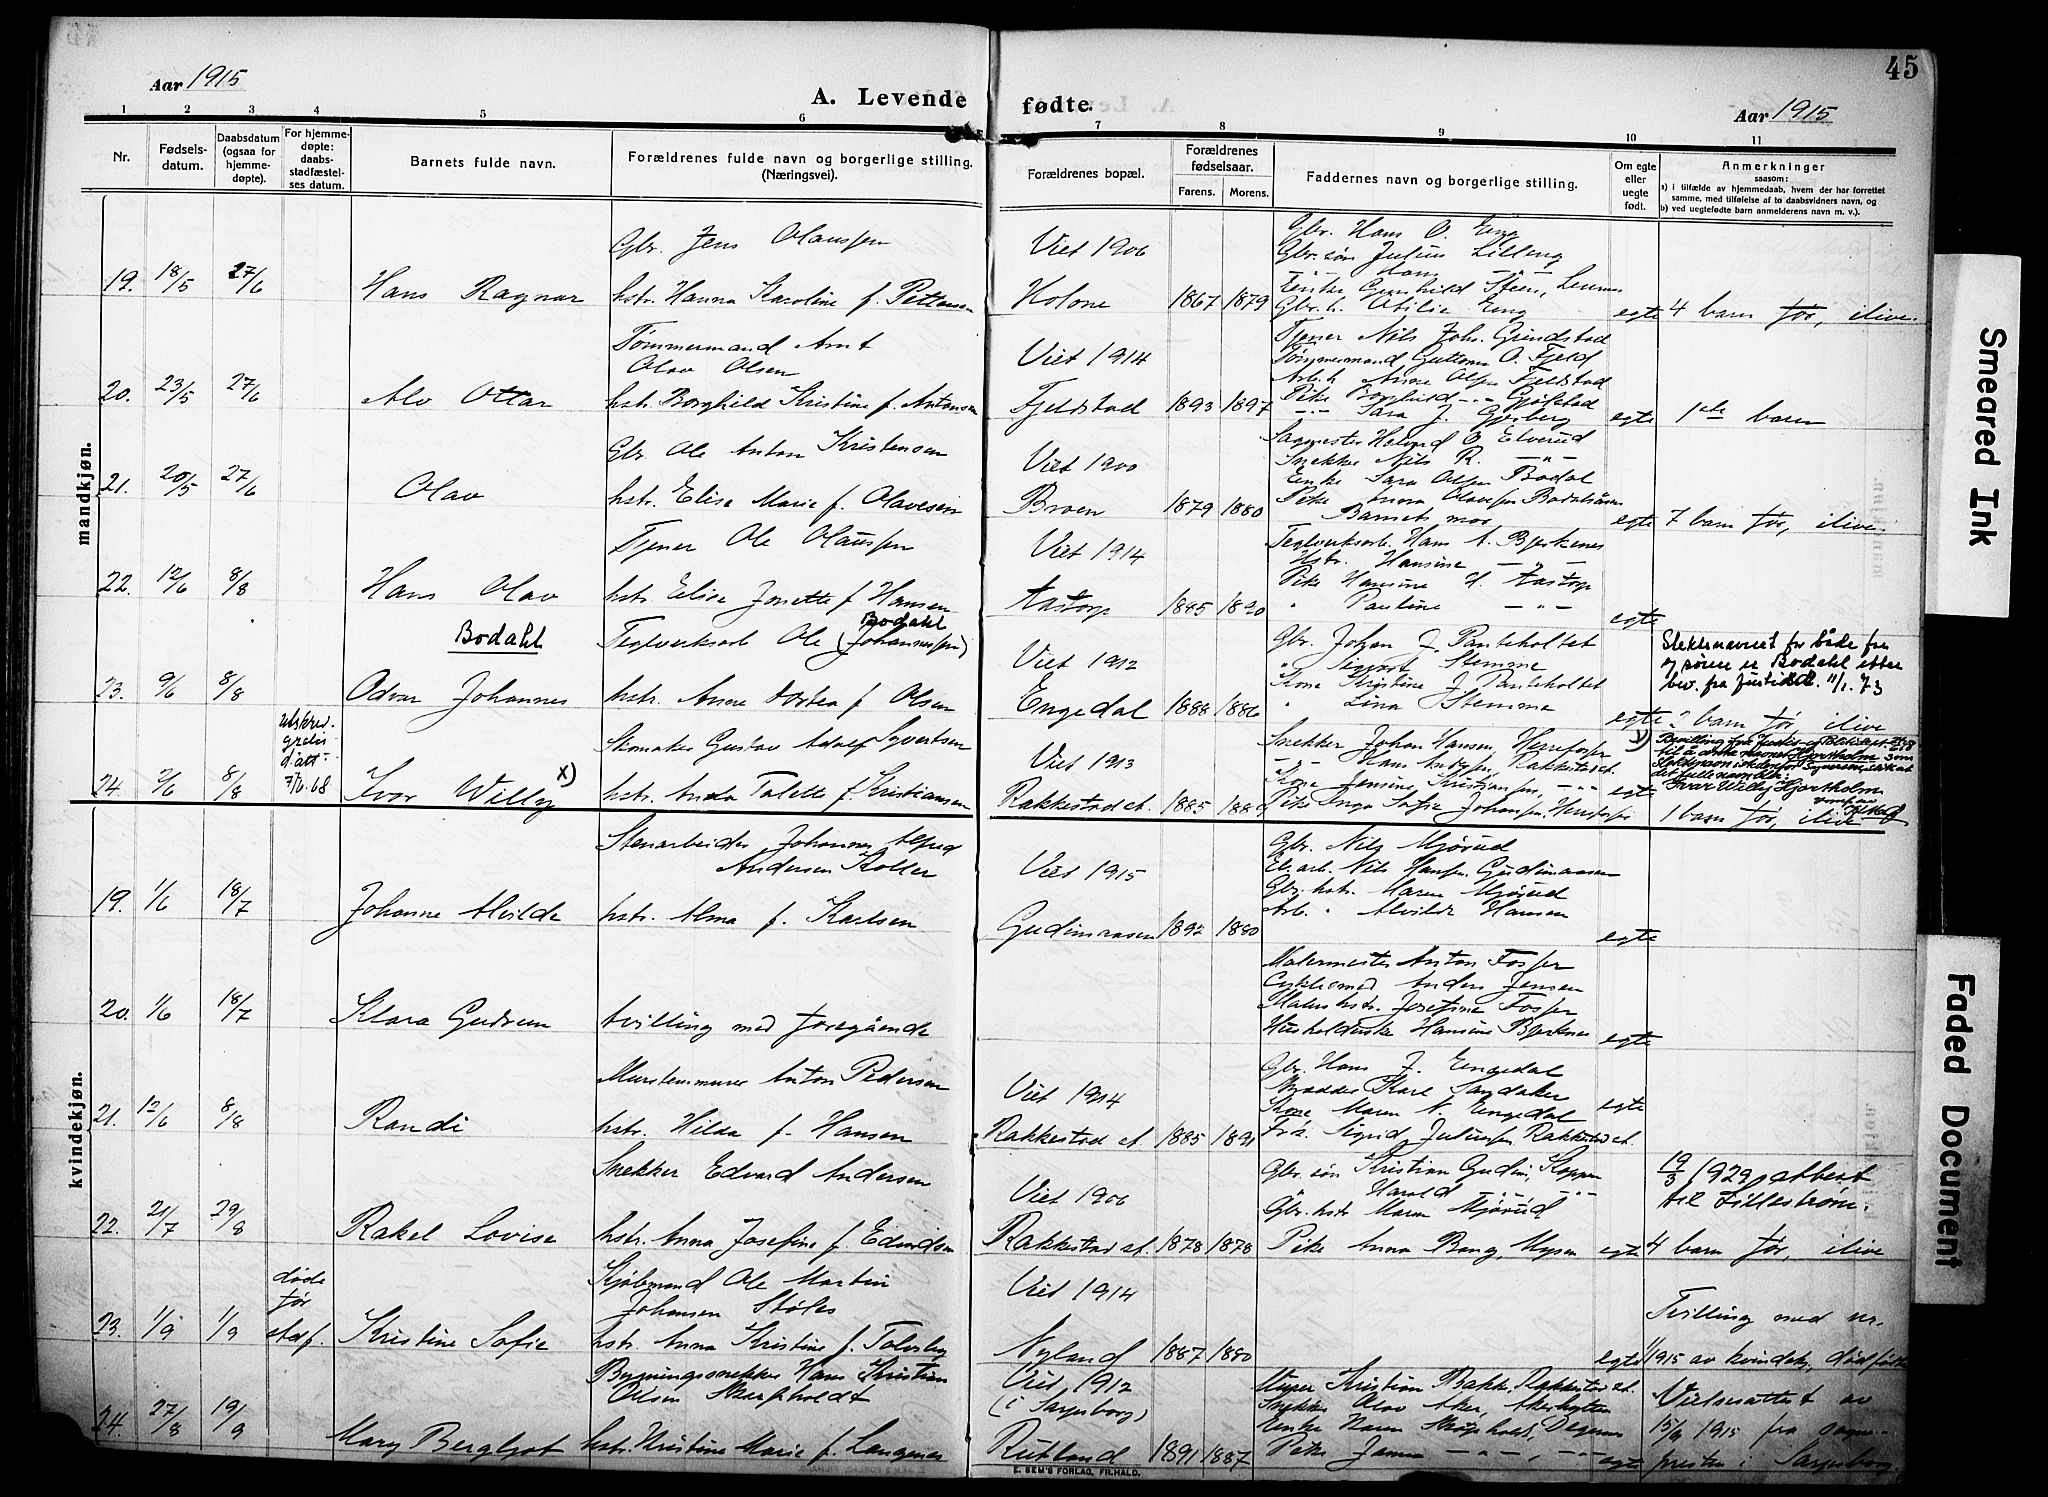 45
Aar 1915
A. Levende fødte.
Aar 1915
1 2 3 4 5 6 7 8 9 10 11
Nr.
Fødsels-
datum.
Daabsdatum
(ogsaa for
hjemme-
døpte).
For hjemme-
døpte:
daabs-
stadfæstel-
ses datum.
Barnets fulde navn.
Forældrenes fulde navn og borgerlige stilling.
(Næringsvei).
Forældrenes bopæl.
Forældrenes
fødselsaar.
Farens. Morens.
Faddernes navn og borgerlige stilling.
Om egte
eller
uegte
født.
Anmerkninger
saasom:
a) i tilfælde av hjemmedaab, hvem der har forrettet
samme, med tilføielse af to daabsvidners navn, og
b) ved uegtefødte barn anmelderens navn m. v.).
mandkjøn.
19. 18/5 27/6
Hans Ragnar
Gbr. Jens Olaussen
hstr. Hanna Karoline f. Pettersen
Viet 1906
Holone 1867 1879
Gbr. Hans O. Eng
Gbr. søn Julius Lilleng
-"- Hans -"-
Enke Gunhild Steen,
Gbr. h. Otilie Eng
egte 4 barn før, ilive.
20. 23/5 27/6
Alv Ottar
Tømmermand Arnt
Olav Olsen
hstr. Borghild Kristine f. Antonsen
Viet 1914
Fjeldstad 1893 1897
Tjener Nils Joh. Grindstad
Tømmermand Guttorm O. Fjeld
Arb. h. Anne Olsen Fjeldstad
Pike Borghild -"- Gjølstad
-"- Sara J. Gjerberg
egte 1ste barn
21. 20/5 27/6
Olav
Gbr. Ole Anton Kristensen
hstr. Elise Marie f. Olavesen
Viet 1900
Broen 1879 1880
Sagmester Halvard O. Elverud
Snekker Nils R. -"-
Enke Sara Olsen Bodal
Pike Anna Olaussen Bodalsåsen
Barnets mor
egte 7 barn før, ilive.
22. 12/6 8/8
Hans Olav
Tjener Ole Olaussen
hstr. Elise Jonette f. Hansen
Viet 1914
Aastorp 1885 1890
Teglverksarb. Hans A. Bjerkenes
Hstr. Hansine -"-
Pike Hansine H. Aastorp
" Pauline -"-
egte
23. 9/6 8/8
Bodahl
Odvar Johannes
Bodahl
Teglverksarb. Ole (Johannessen)
hstr. Anne Dortea f. Olsen
Viet 1912
Engedal 1888 1886
Gbr. Johan J. Panteholtet
" Sigvart Stemme
Kone Kristine J. Panteholtet
" Lina Stemme
Slektsnavnet for både far
og sønn er Bodahl etter
bev. fra Justisd. 11/1. 73
egte 2 barn før, ilive
24. 2/6 8/8
utskrev.
gratis
d. att.
7/6. 68
Ivar Willy x)
Skomaker Gustav Adolf Syvertsen
hstr. Anda Talette f. Kristiansen
Viet 1913
Rakkestad st. 1885 1889
Snekker Johan Hansen, Herrefosser
-"- Hans Andersen, Rakkestad st.
Kone Jensine Kristiansen, -"-
Pike Inga Sofie Johansen, Herrefosser
egte
det fulle navn blir:
Ivar Willy Hjortholm
1 barn før, ilive
kvindekjøn.
19. 1/6 18/7
Johanne Alvilde
Stenarbeider Johannes Alfred
Andersen Koller
hstr. Alma f. Karlsen
Viet 1915
Gudimaasen 1892 1890
Gbr. Nils Mjørud
Nils Hansen Gudimaasen
Gbr. hstr. Maren Mjørud
Arb. " Alvilde Hansen
egte
20. 1/6 18/7
Klara Gudrun
tvilling med foregående
Malermester Anton Fosser
Cyklesmed Anders Jensen
Malers hstr. Josefine Fosser
Husholderske Hansine Bjerkenes
egte
21. 12/6 8/8
Randi
Murstensmurer Anton Pedersen
hstr. Hilda f. Hansen
Viet 1914
Rakkestad st. 1885 1891
Gbr. Hans J. Engedal
Karl Sandaker
Kone Maren N. Engedal
Frk. Sigrid Juliussen, Rakkestad st.
egte
22. 21/7 29/8
Rakel Lovise
Snekker Edvard Andersen
hstr. Anna Josefine f. Edvardsen
Viet 1906
Rakkestad st. 1878 1878
Gbr. søn Kristian Gudim, Kopper
" Harald -"-
Gbr. hstr. Maren Mjørud
Pike Anna Bang, Mysen
19/3 1929, attest
til Lillestrøm.
egte 4 barn før, ilive
23. 1/9 1/9
døde
før
stadf.
Kristine Sofie
Kjøbmand Ole Martin
Johansen Støles
hstr. Anna Kristine f. Tolvsby
Viet 1914
Nyland 1887 1880
egte
Tvilling med nr.
1/1915 av kvindekj. dødfødte
24. 27/8 19/9
Mary Bergljot
Bygningssnekker Hans Kristian
Olsen Skarpholdt
hstr. Kristine Marie f. Langenes
Viet 1912
(i Sarpsborg)
Rutland 1891 1887
Murer Kristian Bakke, Rakkestad st.
Snekker Olav Aker, Akerhytten
Enke Karen Skarpholdt, Degernes
Pike Janna -"-, -"-
egte
Vielsesattest av
15/9 1915 fra sogne-
presten i Sarpsborg.
E. SEM'S FORLAG, FR.HALD.
Smeared Ink
Faded Document